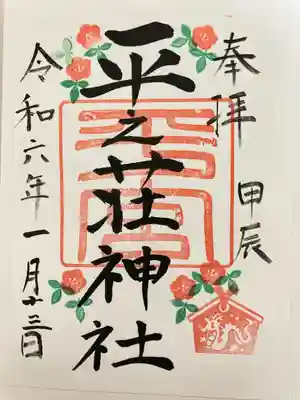 奉拝
甲辰
平之荘神社
令和六年一月廿三日